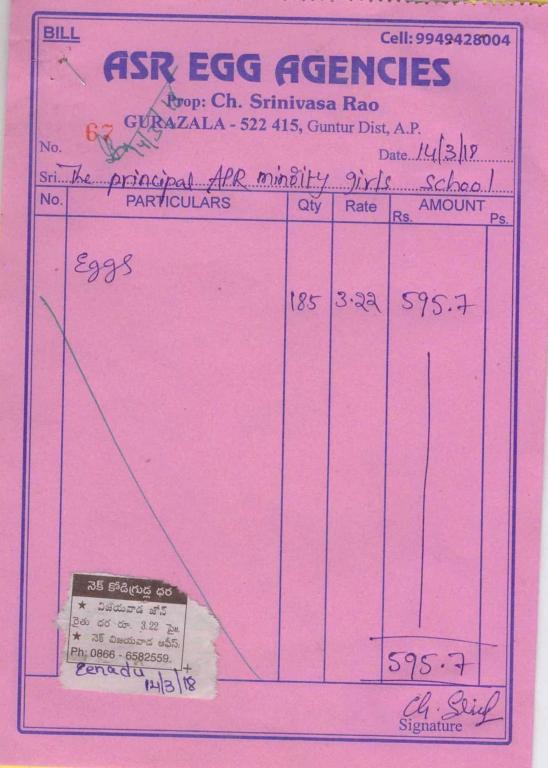 BILL
Cell: 9949428004
ASR EGG AGENCIES
Prop: Ch. Srinivasa Rao
GURAZALA - 522 415, Guntur Dist, A.P.
No. 67
14/3/18
Date 14/3/18
Sri The principal APR minority girls school
No. PARTICULARS Qty Rate AMOUNT
Rs. Ps.
Eggs
185 3.22 595.7
నెక్ కోడిగ్రుడ్ల ధర
★ విజయవాడ జోన్
రైతు ధర రూ. 3.22 పై॥
★ నెక్ విజయవాడ ఆఫీస్:
Ph: 0866 - 6582559.
Eenadu
14/3/18
595.7
Signature